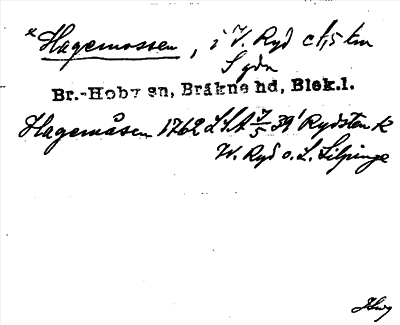 *Hagemossen, i V. Ryd c 1,5 km
Syd
Br.-Hoby sn, Bräkne hd, Blek.l.
Hagemåsen 1762 LSA 7/5 39' Rydsten &
W. Ryd o. L. Silpinge